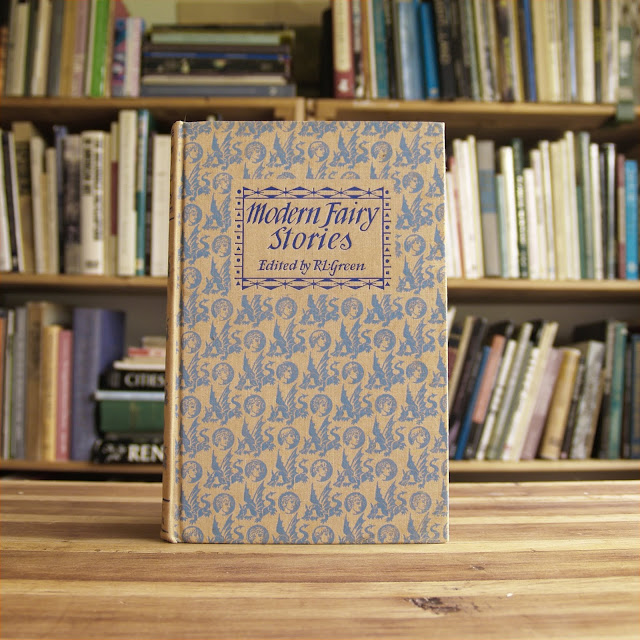 Modern Fairy
Stories
Edited by R.L. Green
CITIES
REN